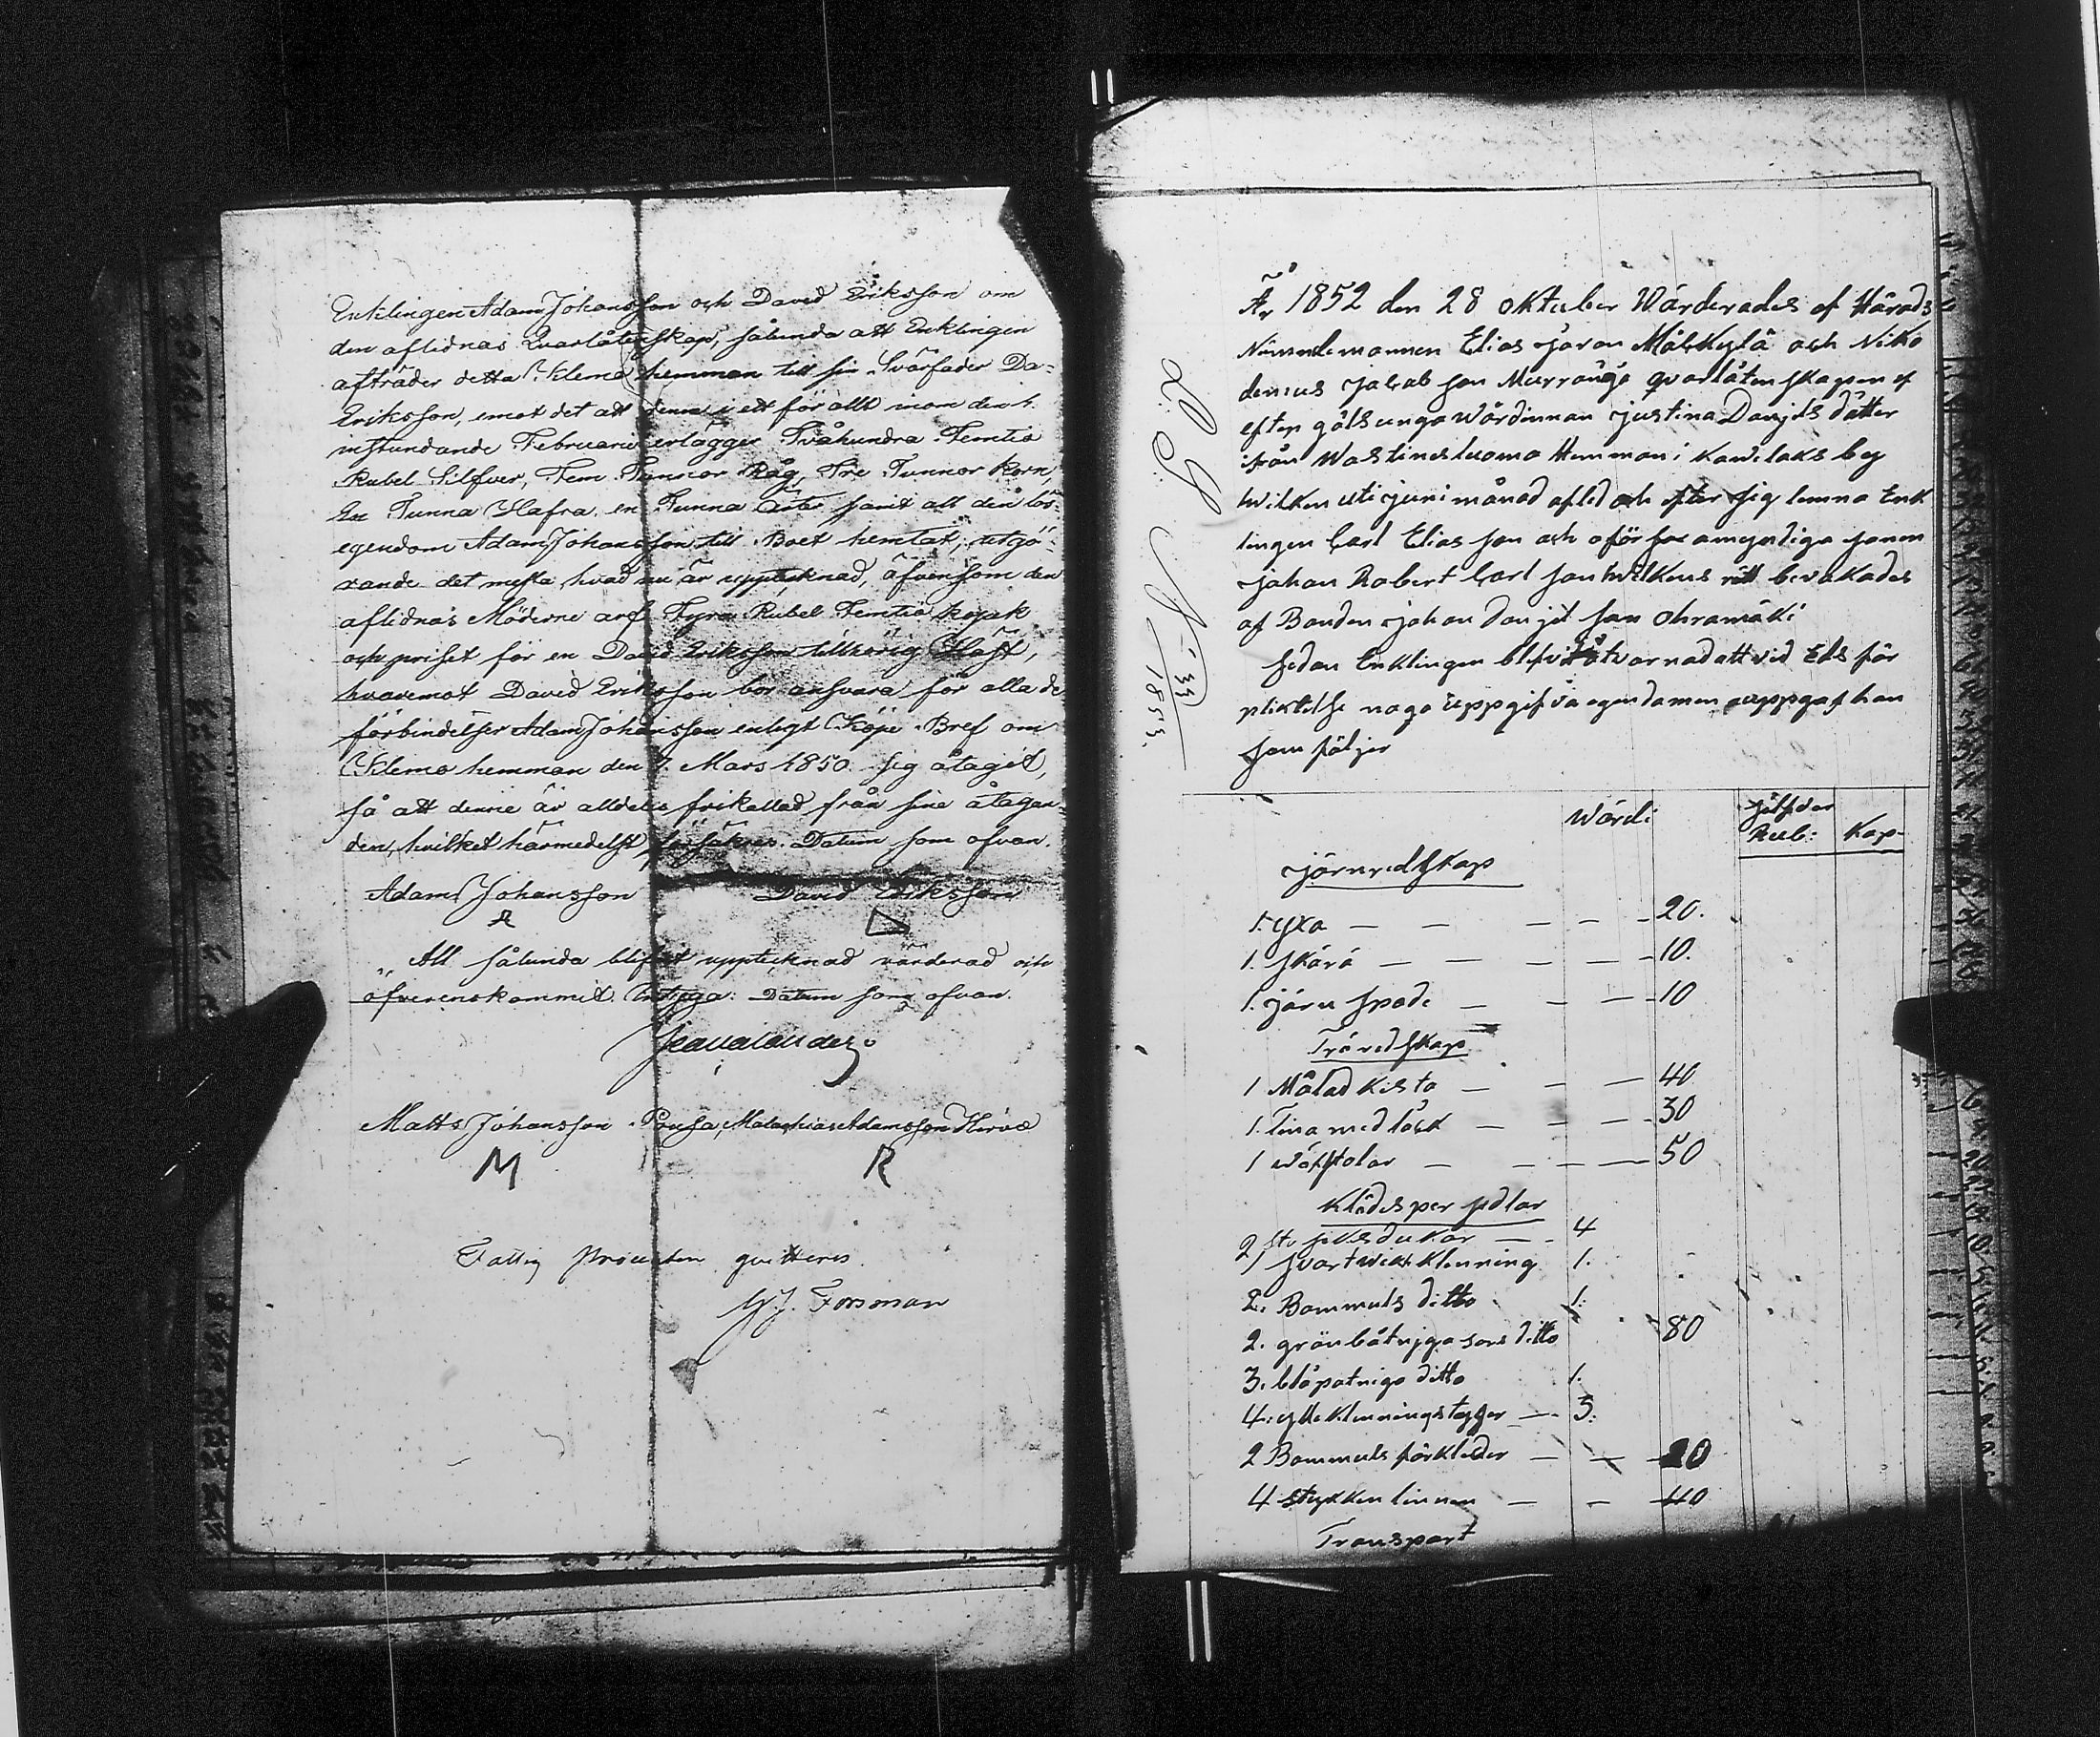 Enklingen Adam Johansson och David Eriksson om
den aflidnas Qvarlåtenskap, sålunda att Enklingen
afträder detta Klemo hemman till sin Svärfader Da-
Eriksson, emot det att denne i ett för allt inom den 1.
instundande Februarii erlägger Tvåhundra Femtio
Rubel Silfver, Fem Tunnor Råg, Tre Tunnor Korn,
En Tunna Hafra en Tunna samt all den lös-
egendom Adam Johansson till Boet hemtat, utgö-
rande det mesta, hvad nu är upptecknad, äfvensom den
aflidnas Möderne arf Fyra Rubel Femtio kopek
och priset för en David Eriksson tillhörig Häst,
hvaremot David Eriksson bör ansvara för alla de
förbindelser Adam Johansson enligt Köpe-Bref om
Klemo hemman den 7. Mars 1850 sig åtagit,
så att denne är alldeles frikallad från sine åtagan-
den, hvilket härmedelst försäkras. Datum som ofvan.
Adam Johansson David Eriksson
Att sålunda blifvit upptecknad värderad och
öfverenskommit betyga. Datum som ofvan.
Matts Johansson Pousa, Malachias Adamsson Hirvo
M R
Fattig Procenten qvitteras
Forsman
År 1852 den 28 oktuber Wärderades af Härads
Nämndemannen Elias Jöran Målkylä och Niko
demus Jacob son Murrånga qvarlåtenskapen ef
efter gålsunga Wärdinnan Justina Danjels dåtter
ifrån Wastinesluoma Hemman i Kawilaks by
hwilken uti juni månad afled och efter sig lemna Enk
lingen Carl Elias son och oförsor omyndiga sonen
Johan Robert Carl son hwilkens rätt bevakades
af Bonden Johan Danjel son Ohramäki
sedan Enklingen blifvit åtvarnad att vid Eds för
pliktelse noga uppgifva egendomen uppgaf han
som följer
N-33
1853.
Wärde Sölfver
Rub: Kop-
Järnredskap
1. yxa — — — — 20.
1. skärä — — — — 10.
1. järn spade — — — 10
Träredskap
1 Målad kista — — — 40
1. Tina med låck — — — 30
1 wäfstolar — — — — 50
Klädespersedlar
2 st. silksdukar — - 4
1 svart wickt klenning 1.
2. Bommuls ditto 1.
2. grönbåtnjga sors ditto 80
3. blåpotniga ditto 1.
4. ylleklenningstyger — 3.
2 Bommuls förkleder — — 20
4 stykken linnen — - 40
Transport